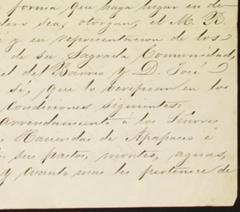 forma que haya lugar en de-
otorgan, el M. R.
y en representacion de los
de su Sagrada Comunidad,
del Barrio y D. José
si, que lo verifican en los
Condiciones siguientes:
Arrendamiento á los Señores
Haciendas de Apapasco é
sus pastos, montes, aguas,
y cuanto mas les pertenece de